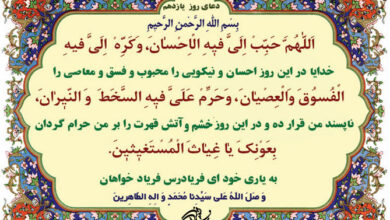 دعای روز یازدهم
بِسمِ اللهِ الرَّحمنِ الرَّحیمِ
اَللّهُمَّ حَبِّبْ اِلَیَّ فیهِ الْاِحْسانَ، وَکَرِّهْ اِلَیَّ فیهِ
خدایا در این روز احسان و نیکویی را محبوب و فسق و معاصی را
الْفُسُوقَ وَالْعِصْیانَ، وَحَرِّمْ عَلَیَّ فیهِ السَّخَطَ وَ النّیرانَ،
ناپسند من قرار ده و در این روز خشم و آتش قهرت را بر من حرام گردان
بِعَوْنِکَ یا غِیاثَ الْمُسْتَغیثینَ.
به یاری خود ای فریادرس فریاد خواهان
وَ صَلَ اللهُ عَلی سَیِّدِنا مُحَمَّد وَ الِهِ الطّاهِرینَ